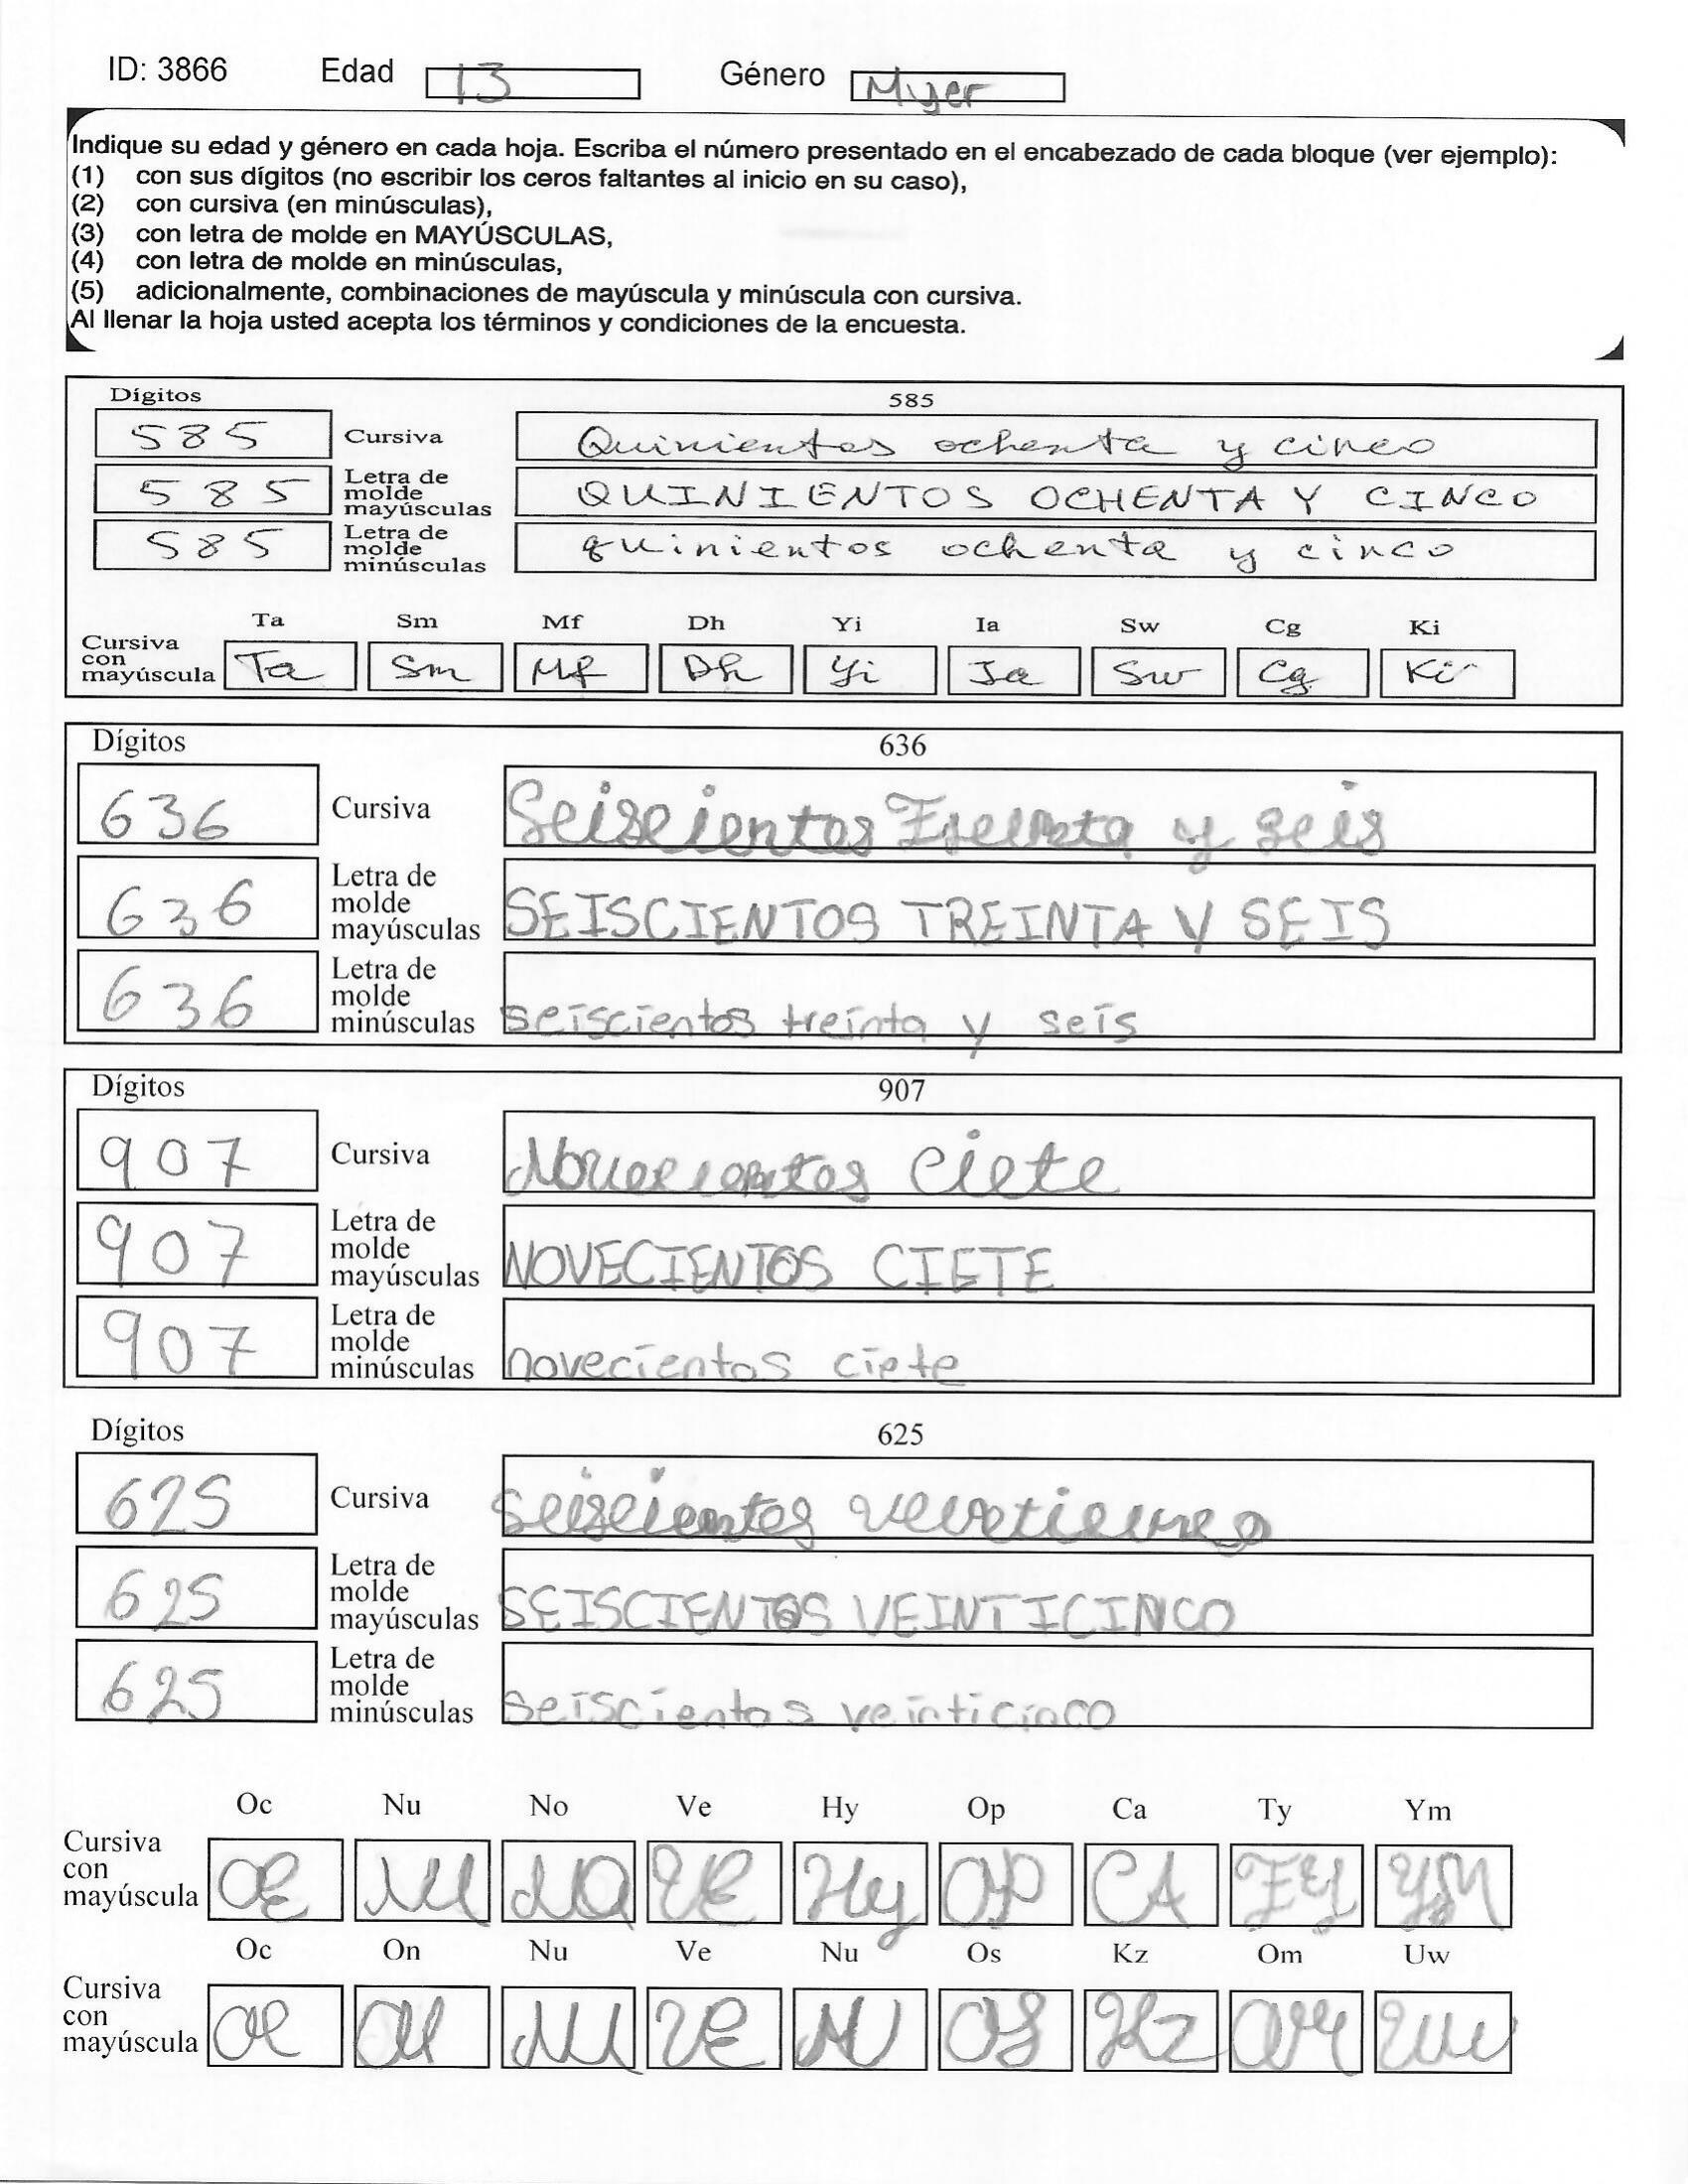 ID: 3866 Edad 13 Género Myer
Indique su edad y género en cada hoja. Escriba el número presentado en el encabezado de cada bloque (ver ejemplo):
(1) con sus dígitos (no escribir los ceros faltantes al inicio en su caso),
(2) con cursiva (en minúsculas),
(3) con letra de molde en MAYÚSCULAS,
(4) con letra de molde en minúsculas,
(5) adicionalmente, combinaciones de mayúscula y minúscula con cursiva.
Al llenar la hoja usted acepta los términos y condiciones de la encuesta.
Dígitos 585
585 Cursiva Quinientos ochenta y cinco
585 Letra de molde mayúsculas QUINIENTOS OCHENTA Y CINCO
585 Letra de molde minúsculas quinientos ochenta y cinco
Ta Sm Mf Dh Yi Ia Sw Cg Ki
Cursiva con mayúscula Ta Sm Mf Dh Yi Ia Sw Cg Ki
Dígitos 636
636 Cursiva Seiscientos Treinta y seis
636 Letra de molde mayúsculas SEISCIENTOS TREINTA Y SEIS
636 Letra de molde minúsculas seiscientos treinta y seis
Dígitos 907
907 Cursiva Novecientos Ciete
907 Letra de molde mayúsculas NOVECIENTOS CIETE
907 Letra de molde minúsculas novecientos ciete
Dígitos 625
625 Cursiva seiscientos veinticinco
625 Letra de molde mayúsculas SEISCIENTOS VEINTICINCO
625 Letra de molde minúsculas seiscientos veinticinco
Oc Nu No Ve Hy Op Ca Ty Ym
Cursiva con mayúscula OC NU NO VE Hy OP CA TY YM
Oc On Nu Ve Nu Os Kz Om Uw
Cursiva con mayúscula OC NU VE NU OS Kz OM Uw